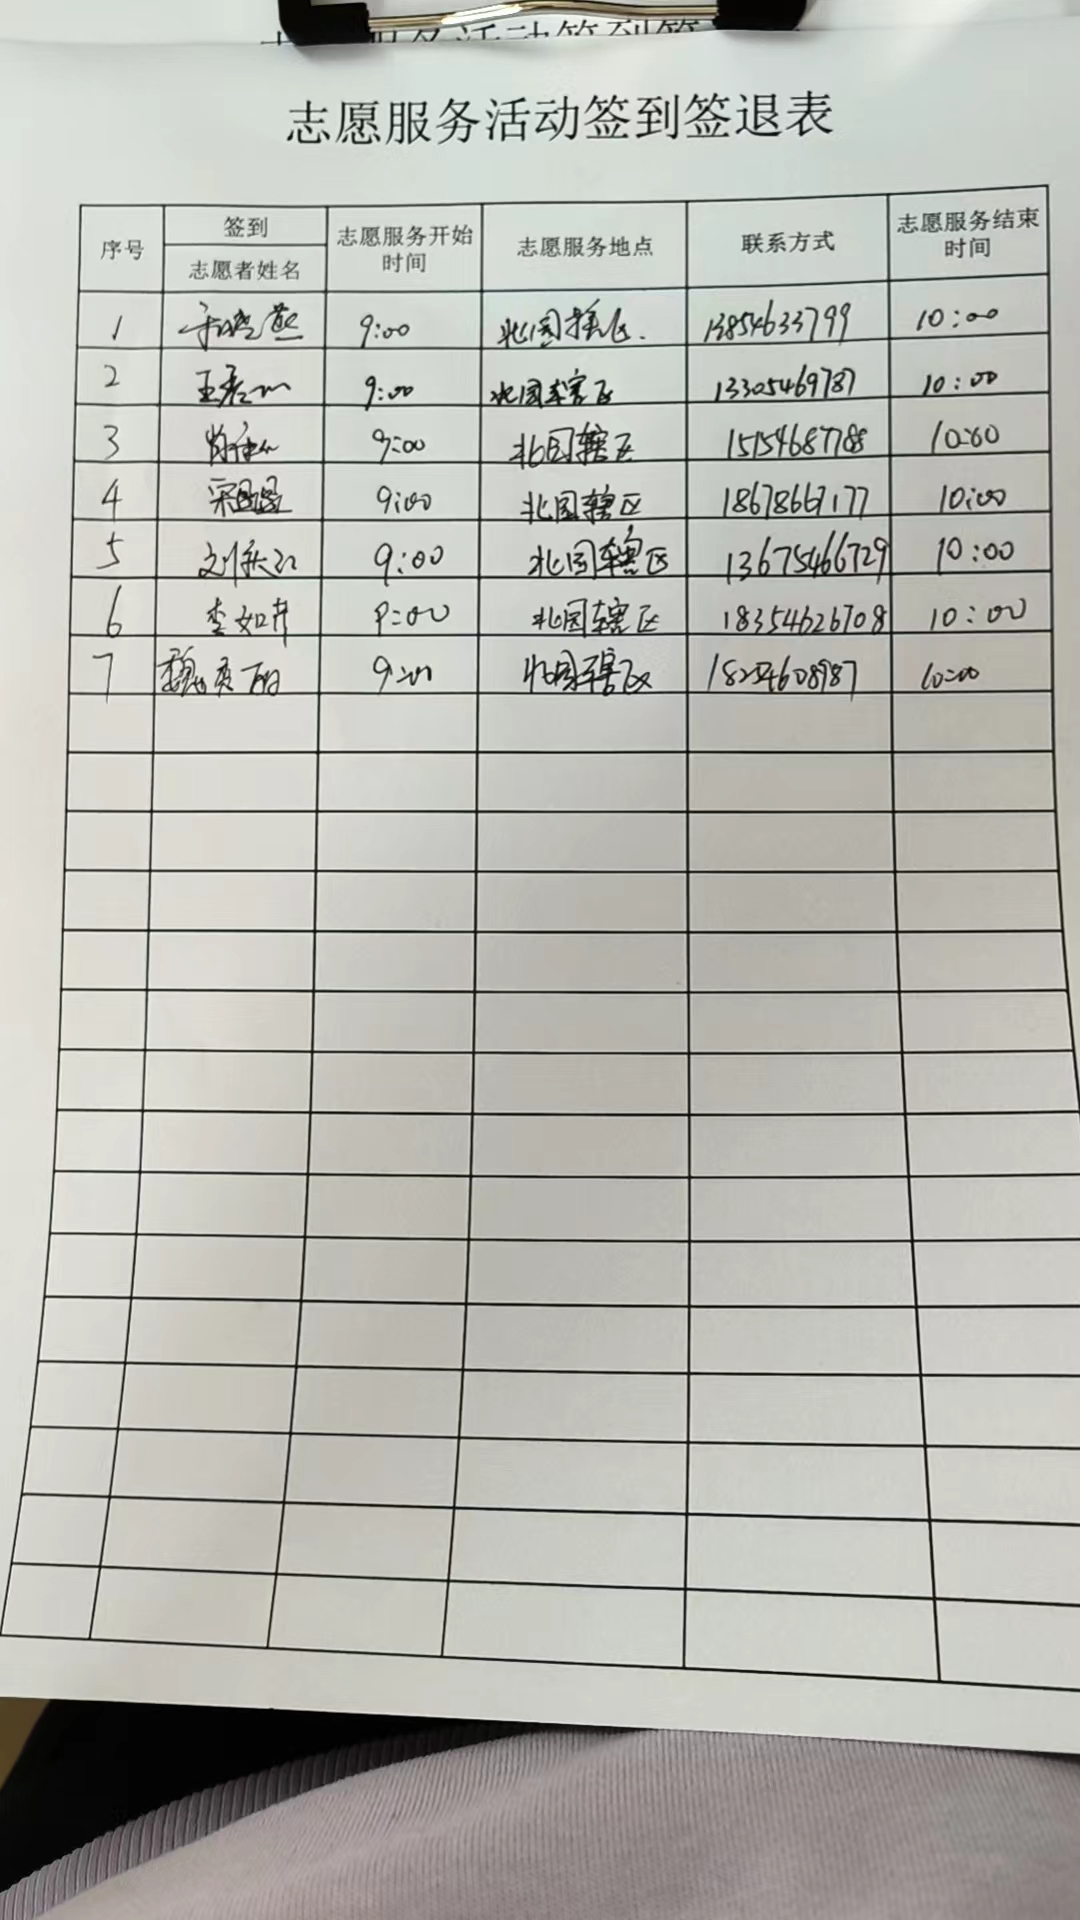 志愿服务活动签到签退表
序号 签到 志愿者姓名 志愿服务开始时间 志愿服务地点 联系方式 志愿服务结束时间
1 于晓燕 9:00 北园辖区. 13854633799 10:00
2 王 9:00 北园辖区 13305469787 10:00
3 9:00 北园辖区 15154687788 10:00
4 宋国 9:00 北园辖区 18678667177 10:00
5 刘 9:00 北园辖区 13675466729 10:00
6 李如 9:00 北园辖区 18354626708 10:00
7 魏 9:00 北园辖区 10:00